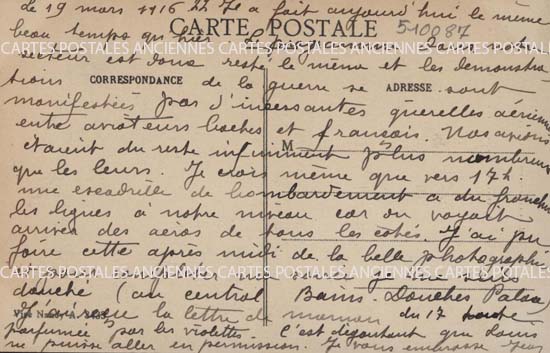 le 19 mars 1916 22 h Il a fait aujourd'hui le même
CARTE POSTALE
510887
beau temps qu'hier. L'
dans notre
secteur est donc resté le même et les démonstra
tions CORRESPONDANCE de la guerre se ADRESSE sont
manifestées par d'incessantes querelles aériennes
entre aviateurs boches et français. Nos avions
étaient du reste infiniment M plus nombreux
que les leurs. Je crois même que vers 17h
une escadrille de bombardement a du franchir
les lignes à notre niveau car on voyait
arriver des aéros de tous les côtés. J'ai pu
faire cette après midi de la belle photographie
CARTES POSTALES ANCIENNES
douché (au central Bains-Douches Palace)
J'ai reçu la lettre de maman du 17
parfumée par les violettes. C'est dégoutant que Louis
ne puisse aller en permission. Je vous embrasse Jean